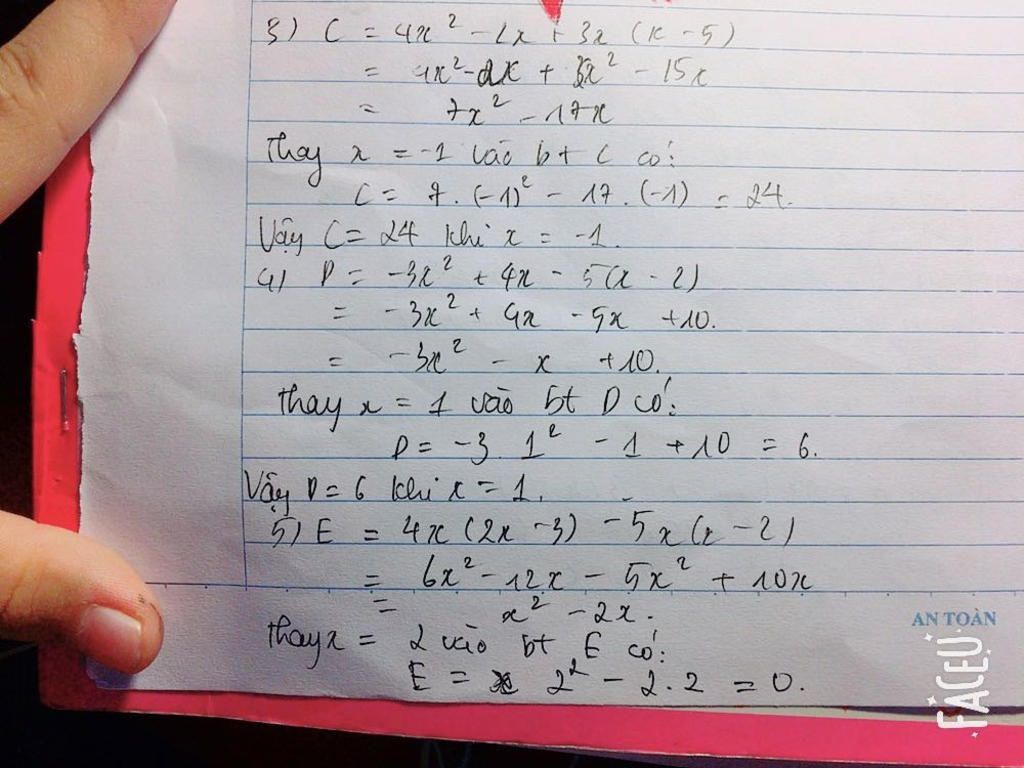 3) C = 4x² - 2x + 3x (x - 5)
= 4x² - 2x + 3x² - 15x
= 7x² - 17x
Thay x = -1 vào bt C có:
C = 7 . (-1)² - 17 . (-1) = 24.
Vậy C = 24 khi x = -1.
4) D = -3x² + 4x - 5(x - 2)
= -3x² + 4x - 5x + 10.
= -3x² - x + 10.
Thay x = 1 vào bt D có:
D = -3 . 1² - 1 + 10 = 6.
Vậy D = 6 khi x = 1.
5) E = 4x (2x - 3) - 5x (x - 2)
= 6x² - 12x - 5x² + 10x
= x² - 2x.
Thay x = 2 vào bt E có:
E = 2² - 2 . 2 = 0.
AN TOÀN
FACEU